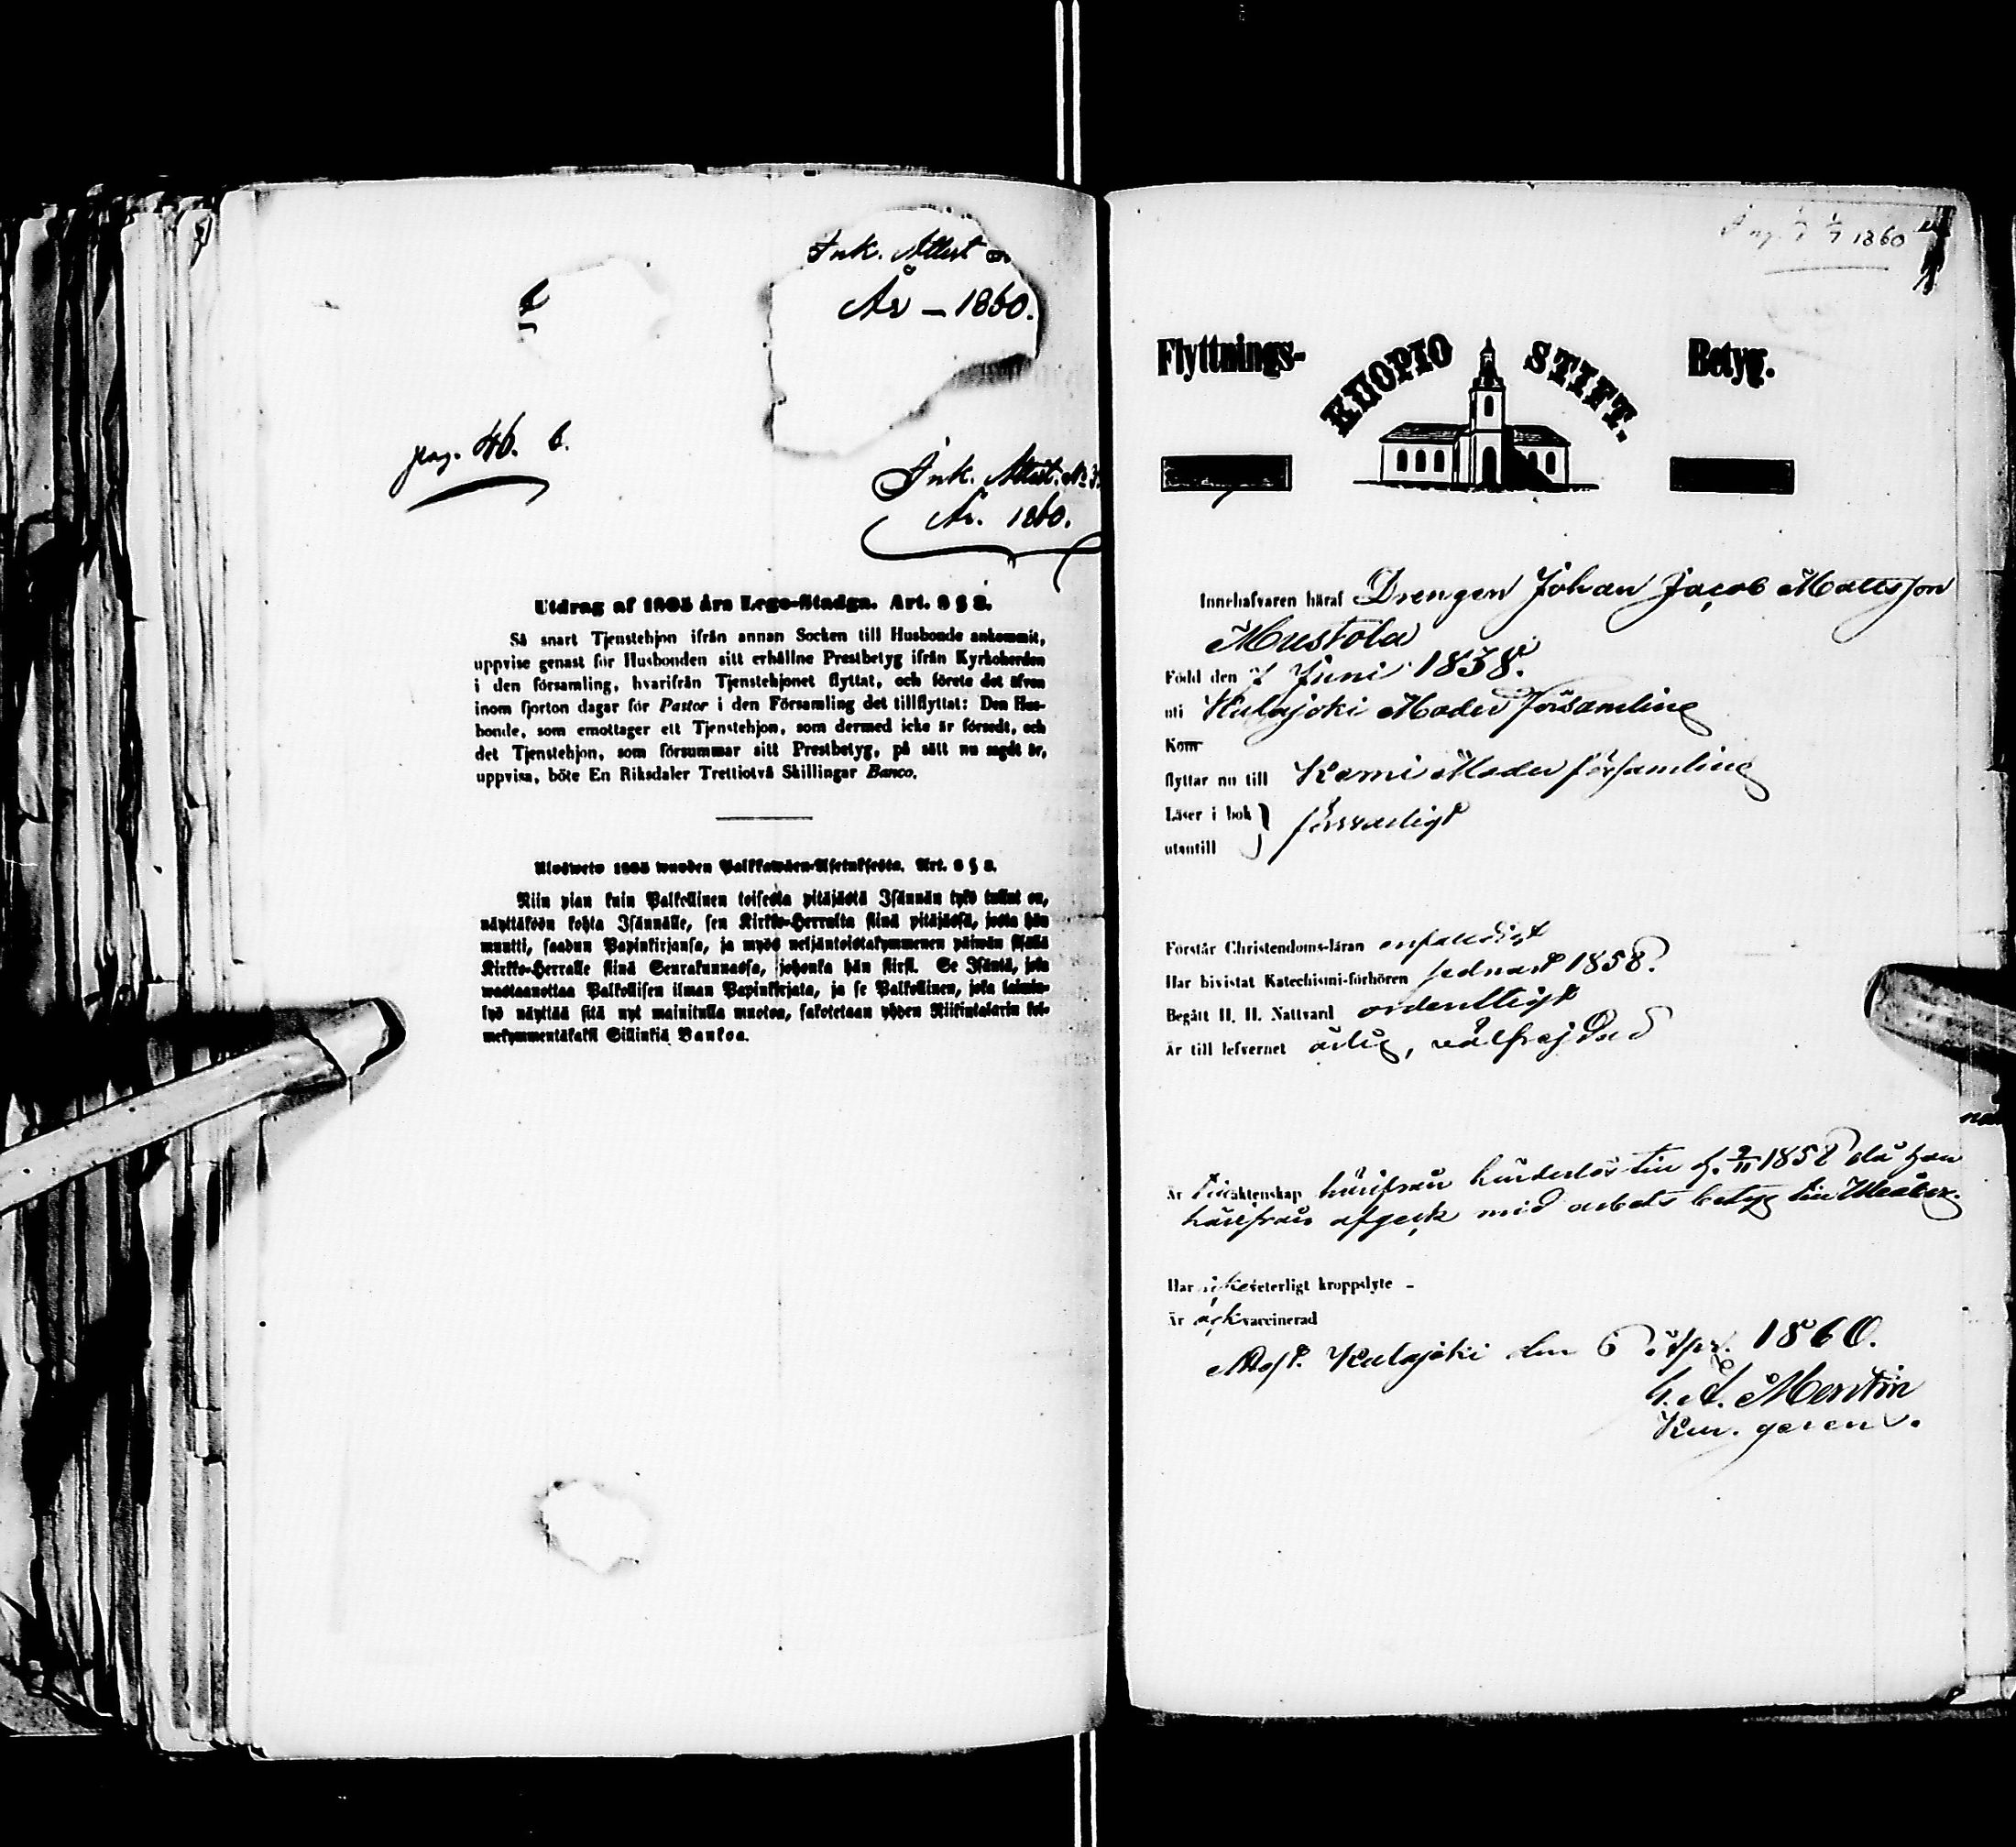 Ink. Attest
År – 1860.
pag. 46. b.
Ink. Attest. No 3
År. 1860.
Utdrag af 1805 års Lego-Stadga. Art. 8 § 2.
Så snart Tjenstehjon ifrån annan Socken till Husbonde ankommit,
uppvise genast för Husbonden sitt erhållne Prestbetyg ifrån Kyrkoherden
i den församling, hvarifrån Tjenstehjonet flyttat, och förete det äfven
inom fjorton dagar för Pastor i den Församling det tillflyttat: Den Hus-
bonde, som emottager ett Tjenstehjon, som dermed icke är försedt, och
det Tjenstehjon, som försummar sitt Prestbetyg, på sätt nu sagdt är,
uppvisa, böte En Riksdaler Trettiotvå Skillingar Banco.
Ulosweto 1805 wuoden Palkkawäen-Asetuksesta. Art. 8 § 2.
Niin pian kuin Palkollinen toisesta pitäjästä Isännän tykö tullut on,
näyttäköön kohta Isännälle, sen Kirkko-Herralta siinä pitäjässä, josta hän
muutti, saadun Papinkirjansa, ja myös neljäntoistakymmenen päiwän sisällä
Kirkko-Herralle siinä Seurakunnassa, johonka hän siirsi. Se Isäntä, jota
wastaanottaa Palkollisen ilman Papinkirjata, ja se Palkollinen, joka laimin-
lyö näyttää sitä nyt mainitulla muotoa, sakotetaan yhden Riikintalarin kol-
mekymmentäkaksi Sillinkiä Bankoa.
1860
Flyttnings- KUOPIO STIFT. Betyg.
Innehafvaren häraf Drengen Johan Jacob Mattsson
Mustola
Född den 7 Juni 1838.
uti Kalajoki Moder församling
Kom
flyttar nu till Kemi Moder församling
Läser i bok } försvarligt
utantill
Förstår Christendoms-läran enfaldigt
Har bivistat Katechismi-förhören sednast 1858.
Begått H. H. Nattvard ordentligt
Är till lefvernet ärlig, välfrejdad
Är till äktenskap härifrån hinderlös till d. 2/11 1858 då han
härifrån afgick med arbets betyg till Uleåborg.
Har icke veterligt kroppslyte –
Är ock vaccinerad
Attest. Kalajoki den 6 Apr. 1860.
Km. gerens.